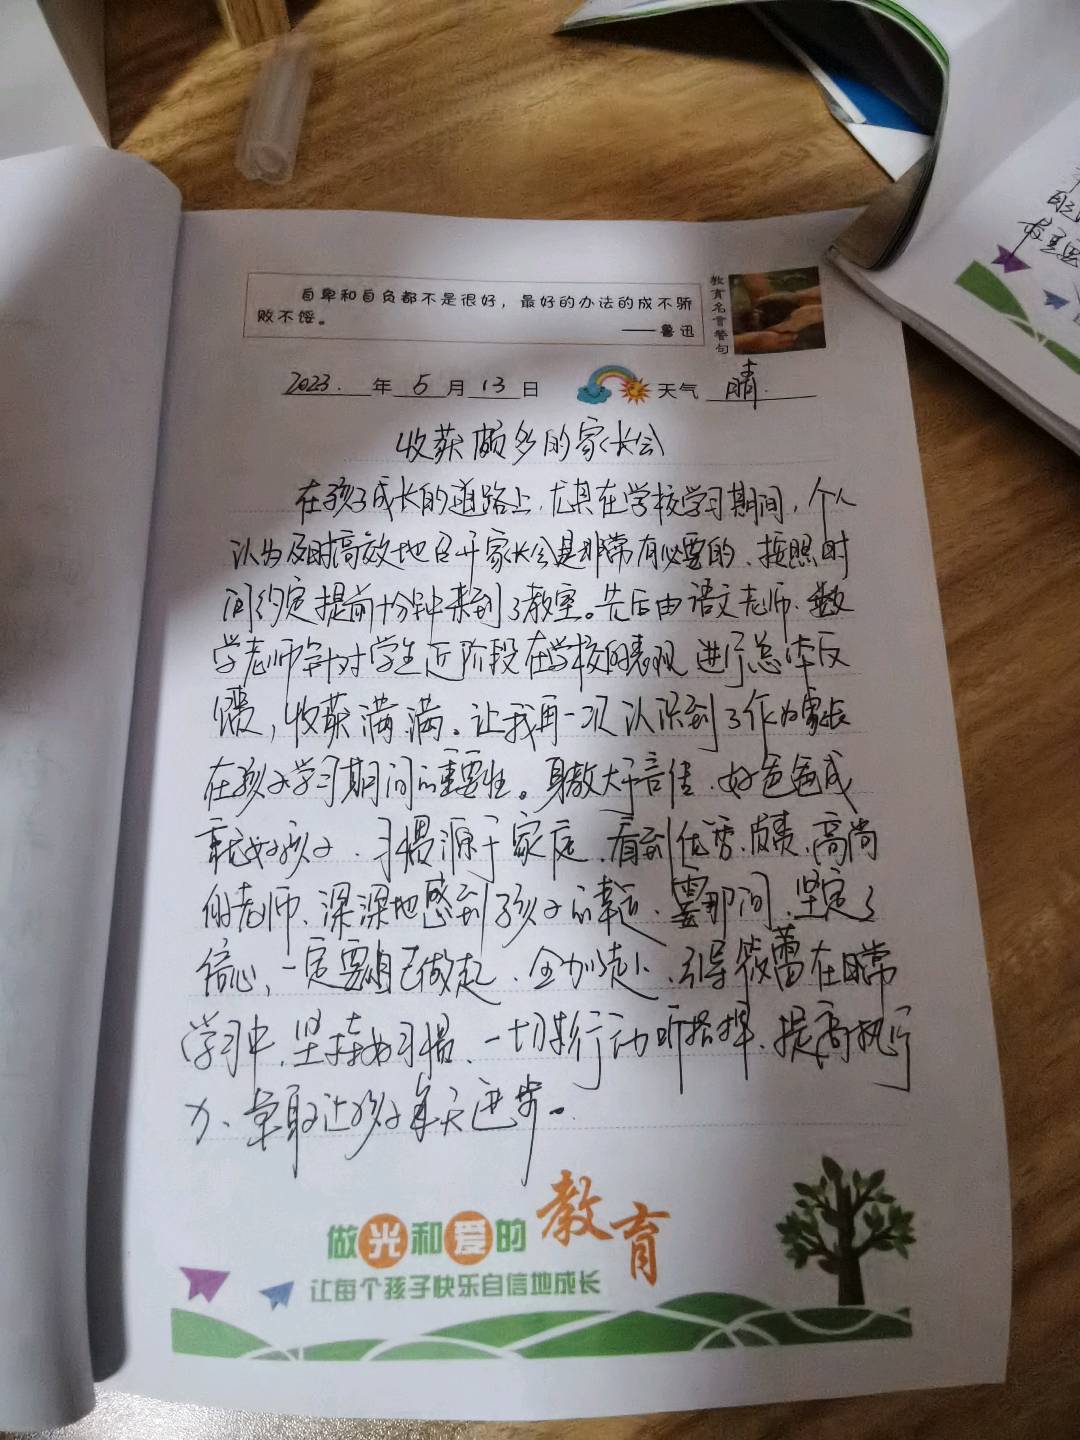 自卑和自负都不是很好，最好的办法的成不骄
败不馁。
——鲁迅
教育名言警句
2023.年 5月13日 天气 晴.
收获颇多的家长会
在孩子成长的道路上,尤其在学校学习期间,个人
认为及时高效地召开家长会是非常有必要的、按照时
间约定提前十分钟来到了教室。先后由语文老师、数
学老师针对学生近阶段在学校的表现进行总体反
馈,收获满满。让我再一次认识到了作为家长
在孩子学习期间的重要性。身教大于言传、好爸爸成
就好孩子、习惯源于家庭、看到优秀、负责、高尚
的老师、深深地感到孩子的幸运、霎那间、坚定了
信心,一定要自己做起、全力以赴、引导筱蕾在日常
学习中、坚持好习惯、一切行动听指挥、提高执行
力、争取让孩子每天进步。
做光和爱的教育
让每个孩子快乐自信地成长